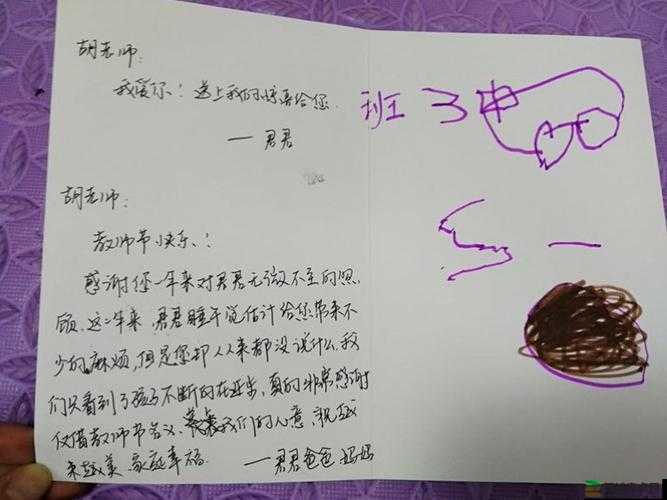 胡老师:
我爱你!送上我的惊喜给您.
— 君君
胡老师:
教师节快乐!
感谢您一年来对君君无微不至的照
顾,这一年来,君君睡午觉估计给您带来不
少的麻烦,但是您却从来都没说什么,我
们只看到了孩子不断的在进步,真的非常感谢
仅借教师节名义,我们的心意,祝越
来越美,家庭幸福.
— 君君爸爸妈妈
班 3